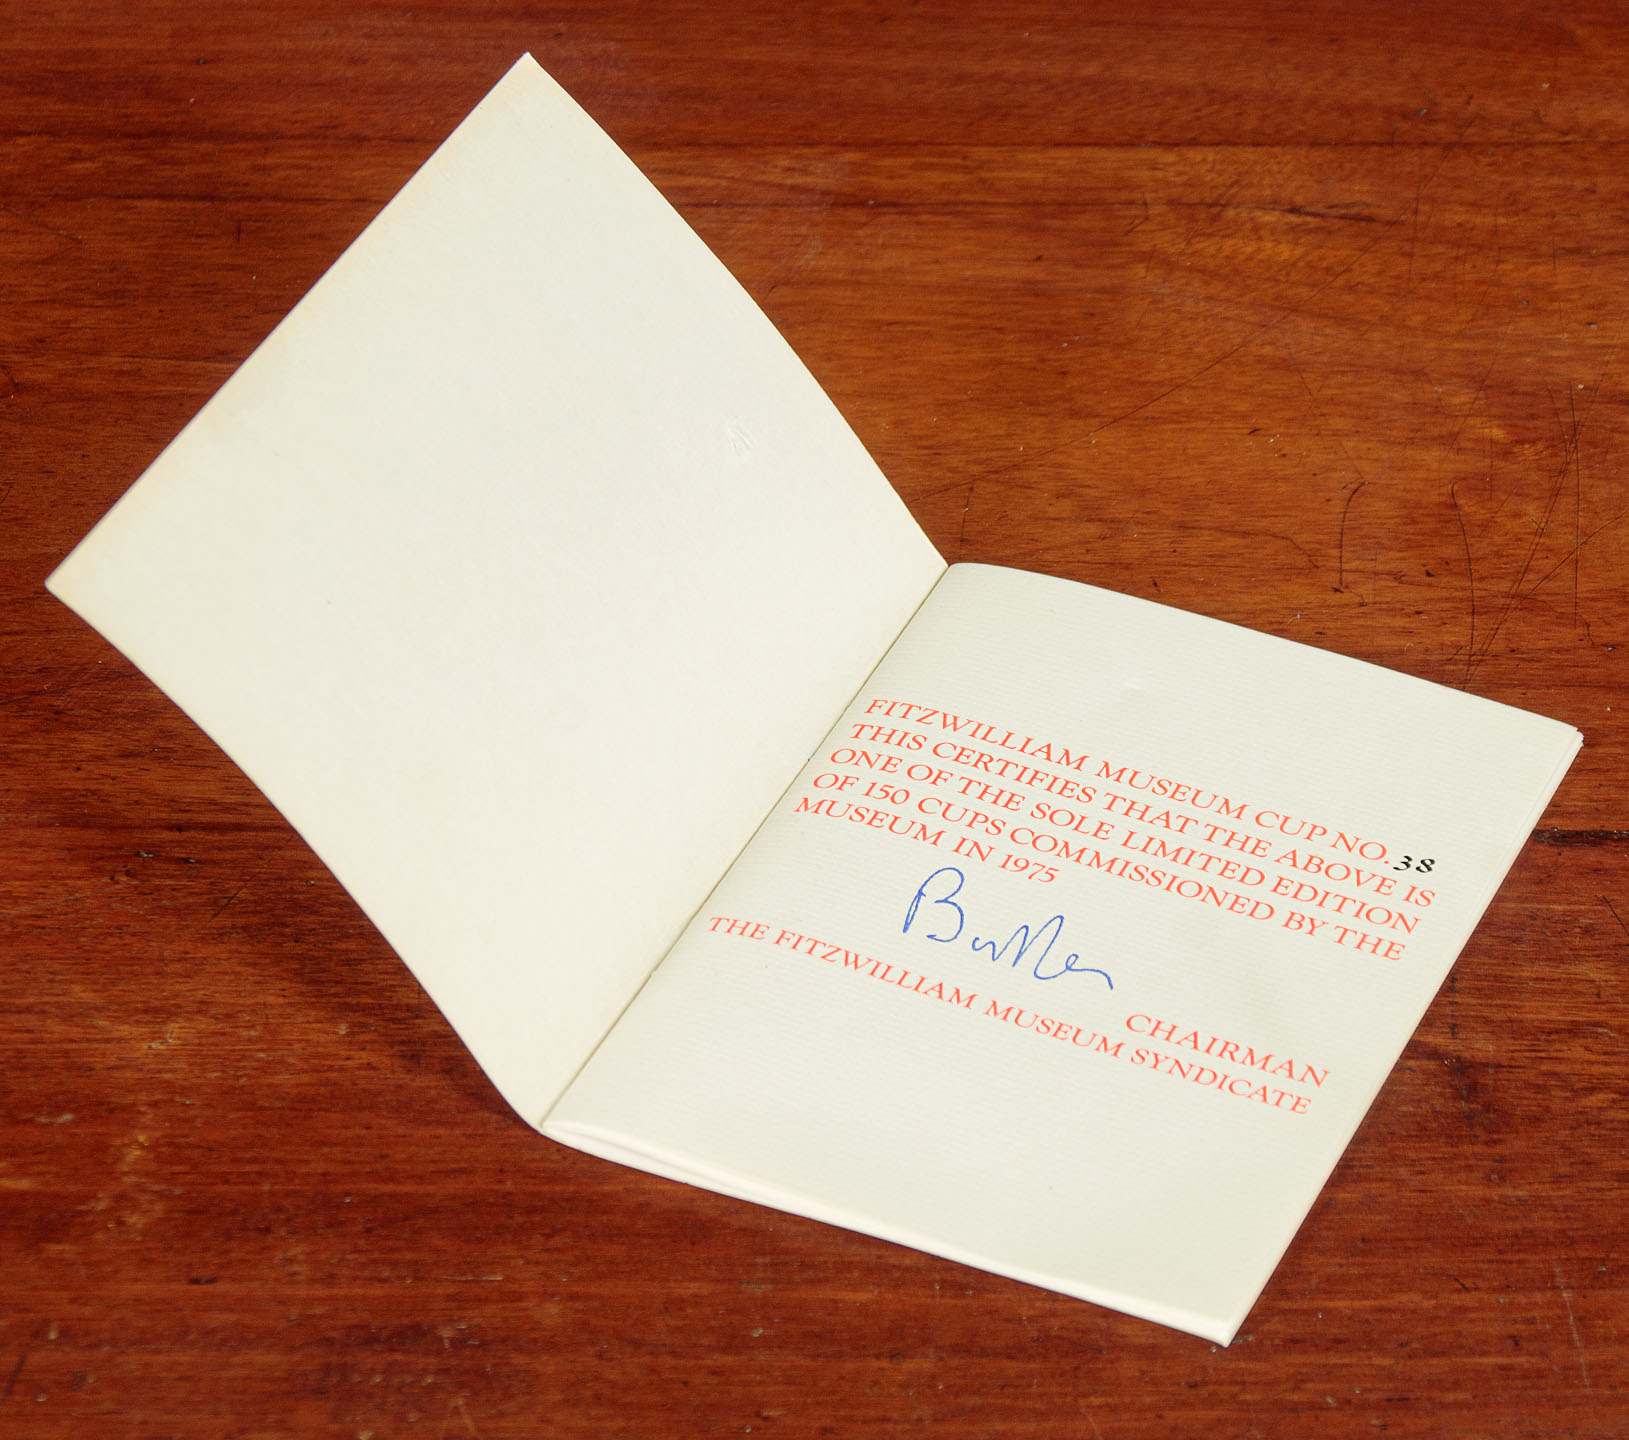 FITZWILLIAM MUSEUM CUP NO. 38
THIS CERTIFIES THAT THE ABOVE IS
ONE OF THE SOLE LIMITED EDITION
OF 150 CUPS COMMISSIONED BY THE
MUSEUM IN 1975
Butler
CHAIRMAN
THE FITZWILLIAM MUSEUM SYNDICATE